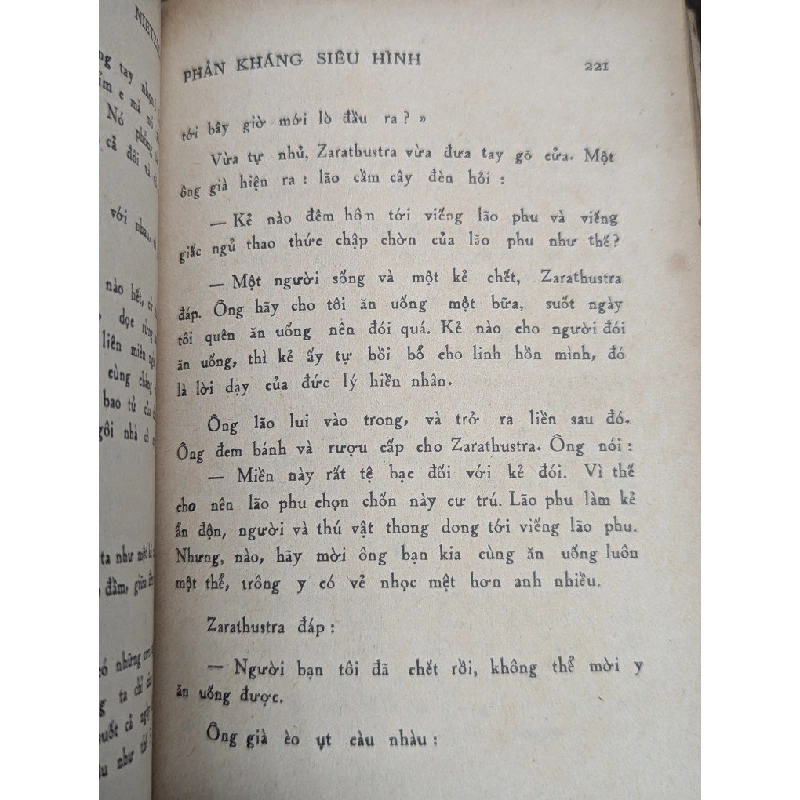 PHẢN KHÁNG SIÊU HÌNH 221
tới bây giờ mới lò đầu ra ? »
Vừa tự nhủ, Zarathustra vừa đưa tay gõ cửa. Một
ông già hiện ra : lão cầm cây đèn hỏi :
— Kẻ nào đêm hôn tới viếng lão phu và viếng
giấc ngủ thao thức chập chờn của lão phu như thế?
— Một người sống và một kẻ chết, Zarathustra
đáp. Ông hãy cho tôi ăn uống một bữa, suốt ngày
tôi quên ăn uống nên đói quá. Kẻ nào cho người đói
ăn uống, thì kẻ ấy tự bồi bổ cho linh hồn mình, đó
là lời dạy của đức lý hiền nhân.
Ông lão lui vào trong, và trở ra liền sau đó.
Ông đem bánh và rượu cấp cho Zarathustra. Ông nói :
— Miền này rất tệ bạc đối với kẻ đói. Vì thế
cho nên lão phu chọn chốn này cư trú. Lão phu làm kẻ
ẩn độn, người và thú vật thong dong tới viếng lão phu.
Nhưng, nào, hãy mời ông bạn kia cùng ăn uống luôn
một thể, trông y có vẻ nhọc mệt hơn anh nhiều.
Zarathustra đáp :
— Người bạn tôi đã chết rồi, không thể mời y
ăn uống được.
Ông già èo ụt càu nhàu :